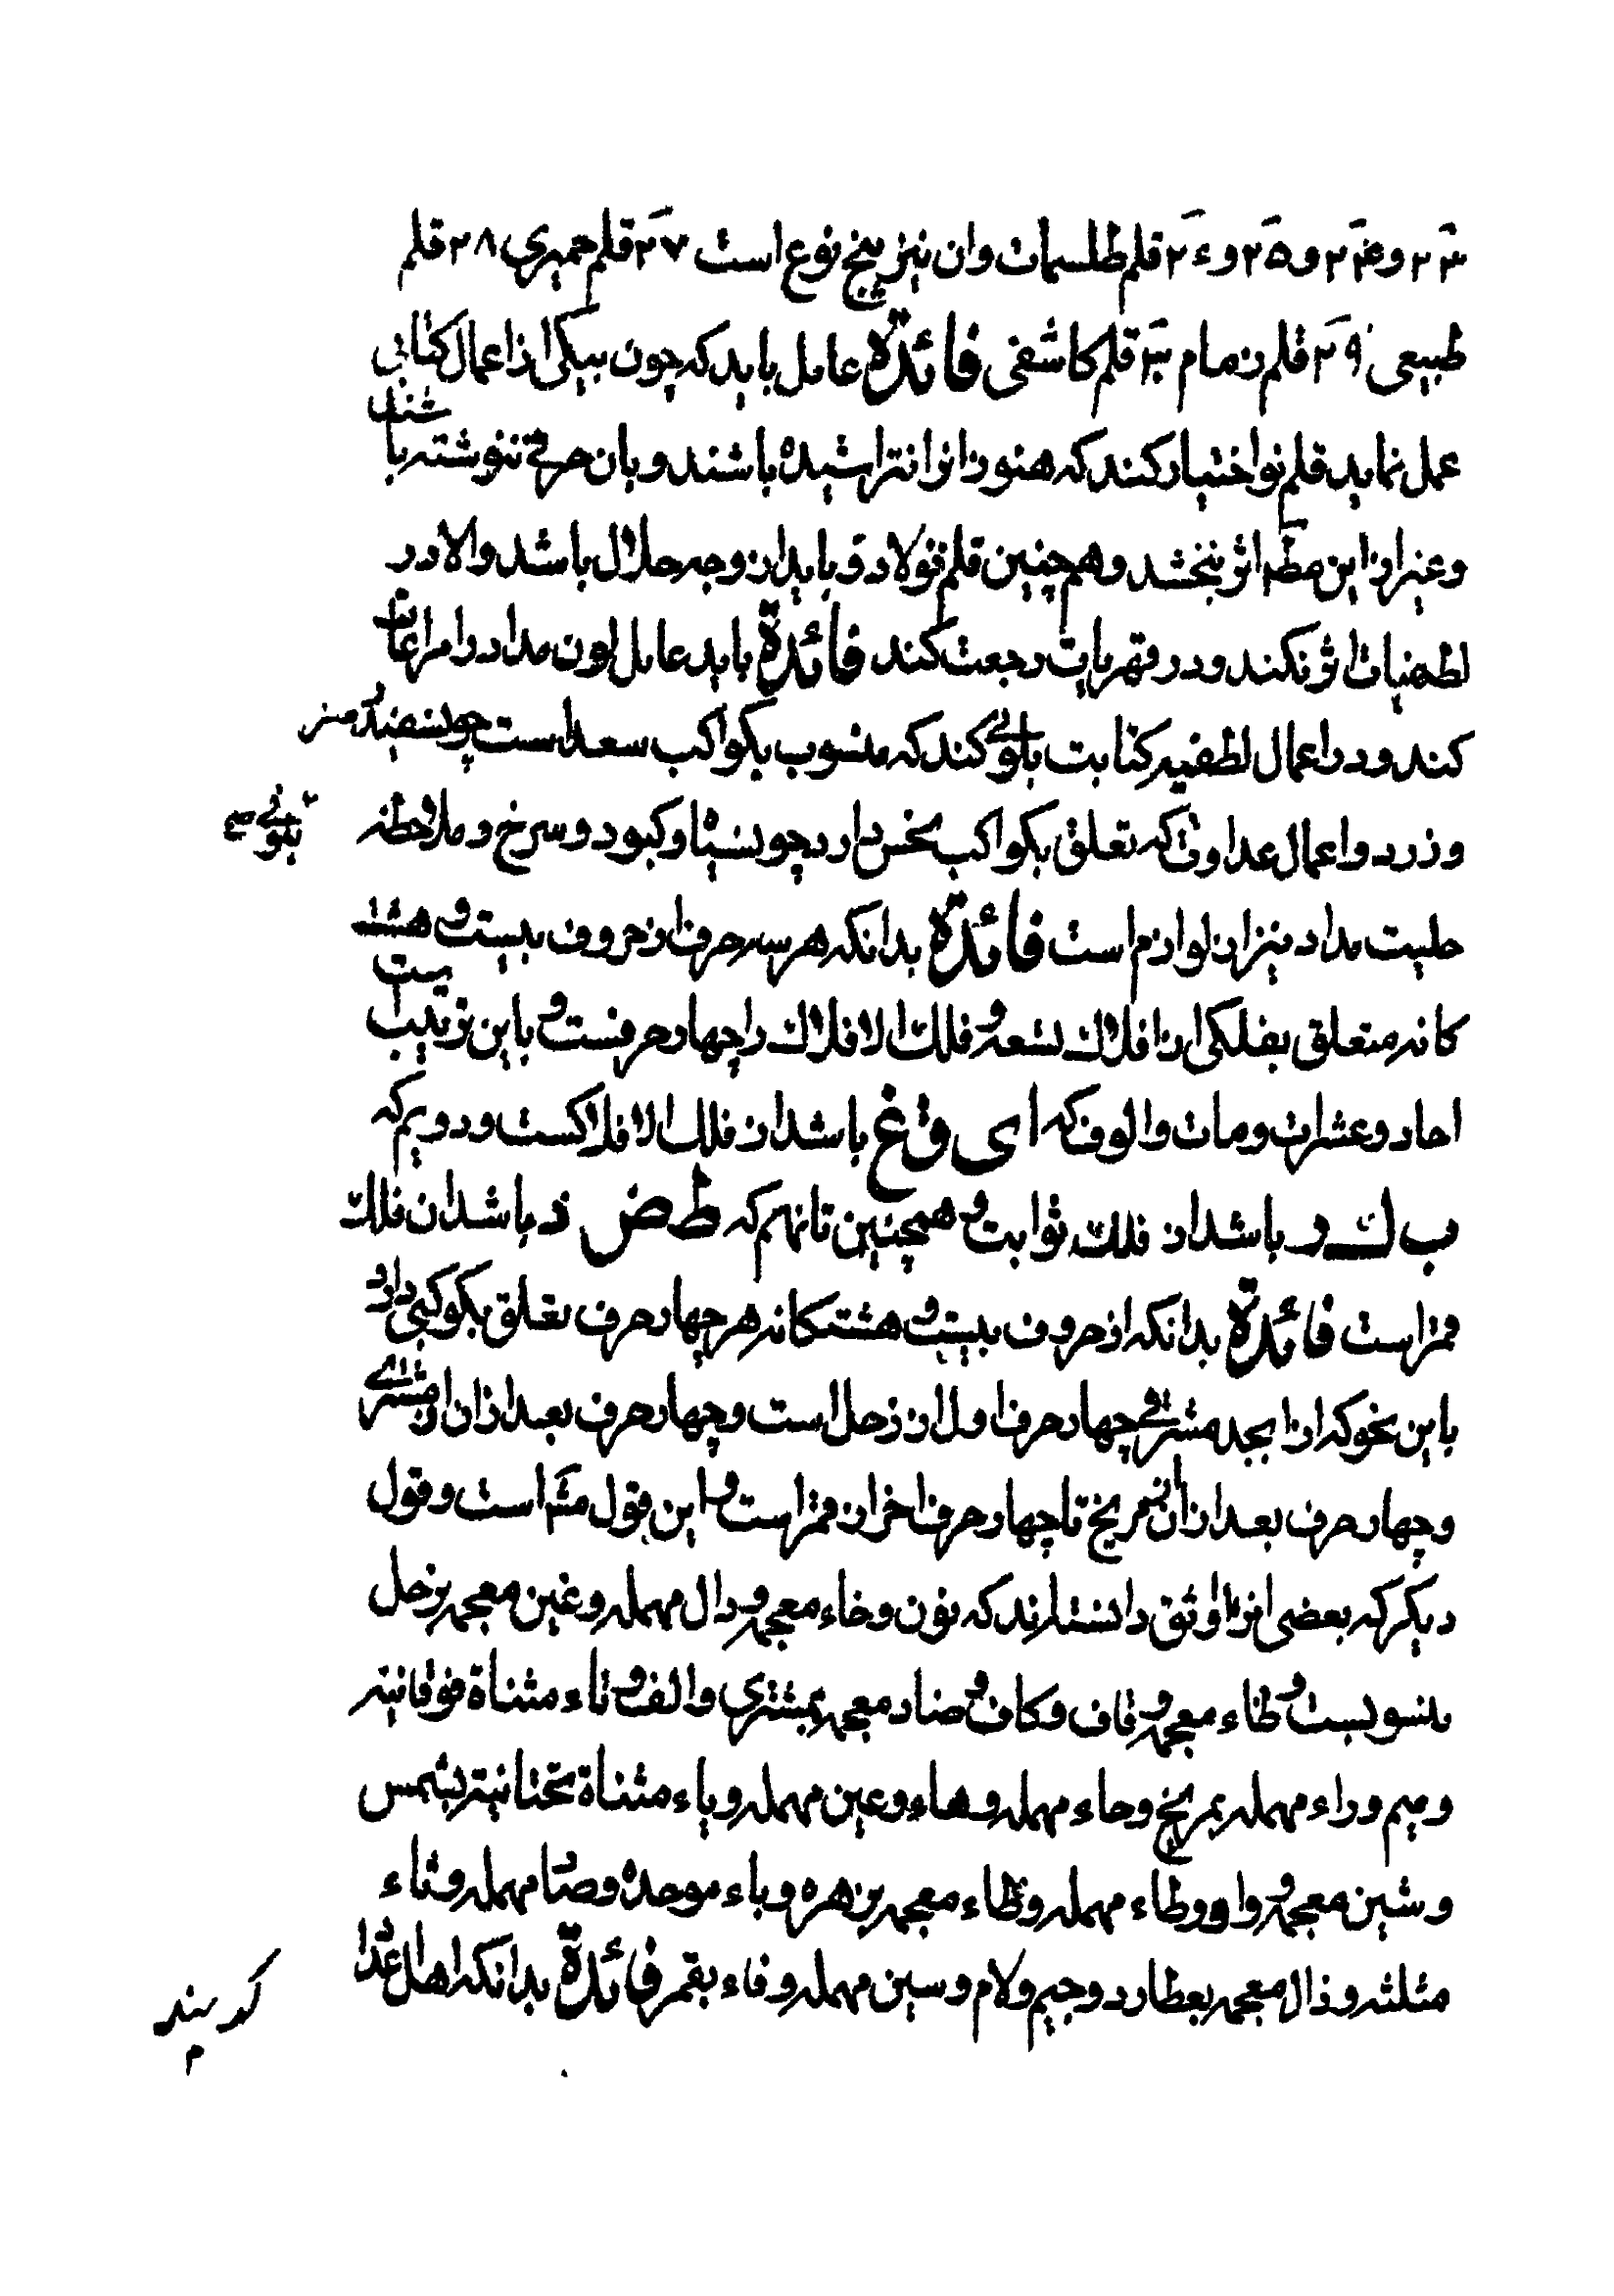 ۲۳ و ۲۴ و ۲۵ و ۲۶ قلم طلسمات وان نیز پنج نوع است ۲۷ قلم حمیری ۲۸ قلم
طبیعی ۲۹ قلم زمام ۳۰ قلم کاشفی فائدة عامل باید که چون بیکی از اعمال کتابی
عمل نماید قلم نو اختیار کند که هنوز انرا نتراشیده باشند و بان حرفی ننوشته باشند
و غیر از این اثر نبخشد و هم چنین قلم فولاد و باید از وجه حلال باشد والا در
لطفیات اثر نکند و در قهریات رجعت کند فائدة باید عامل لون مداد را مراعات
کند و در اعمال لطفیه کتابت بلونی کند که منسوب بکواکب سعد است چون سفید و سبز
و زرد و اعمال عداوت که تعلق بکواکب نحس دارد چون سیاه و کبود و سرخ و ملاحظه
بلونی
حلیت مداد نیز از لوازم است فائدة بدانکه هر سه حرف از حروف بیست و هشت
کانه متعلق بفلکی از افلاک تسعه و فلک الافلاک را چهار حرفست و باین ترتیب است
احاد و عشرات و مات والوف که ا ی ق غ باشد از فلک الافلاکست و دویم که
ب ك ر باشد از فلک ثوابت و همچنین تا نهم که ط ض ذ باشد از فلک
قمر است فائدة بدانکه از حروف بیست و هشتکانه هر چهار حرف تعلق بکوکبی دارد
باین نحو که از ابجد مشرقی چهار حرف اول از زحل است و چهار حرف بعد از ان از مشتری
و چهار حرف بعد از ان از مریخ تا چهار حرف اخر از قمر است و این قول است و قول
دیکر که بعضی انرا اوثق دانسته اند که نون و خاء معجمه و دال مهمله و غین معجمه بزحل
منسوبست و ظاء معجمه و قاف و کاف و ضاد معجمه بمشتری و الف و تاء مثناة فوقانیه
و میم و راء مهمله بمریخ و حاء مهمله و هاء و عین مهمله و یاء مثناة تحتانیه بشمس
و شین معجمه و واو و طاء مهمله و ظاء معجمه بزهره و باء موحده و صاد مهمله و ثاء
مثلثه و ذال معجمه بعطارد و جیم و لام و سین مهمله و فاء بقمر فائدة بدانکه اهل